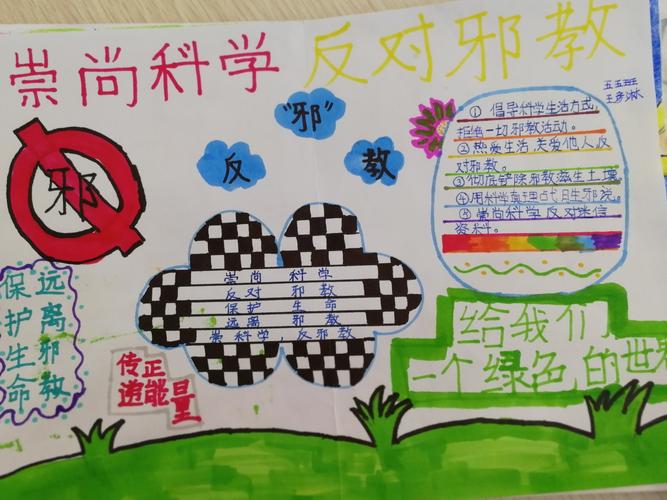 崇尚科学 反对邪教
五五班
"邪"
反
教
邪
①倡导科学生活方式,
拒绝一切邪教活动。
②热爱生活,关爱他人,反
对邪教。
③彻底铲除邪教滋生土壤。
④用科学真理占日生邪说。
⑤崇尚科学反对迷信
资料。
崇尚科学
反对邪教
保护生命
远离邪教
崇科学,反邪教
远离邪教
保护生命
传正
递能量
给我们
一个绿色的世界